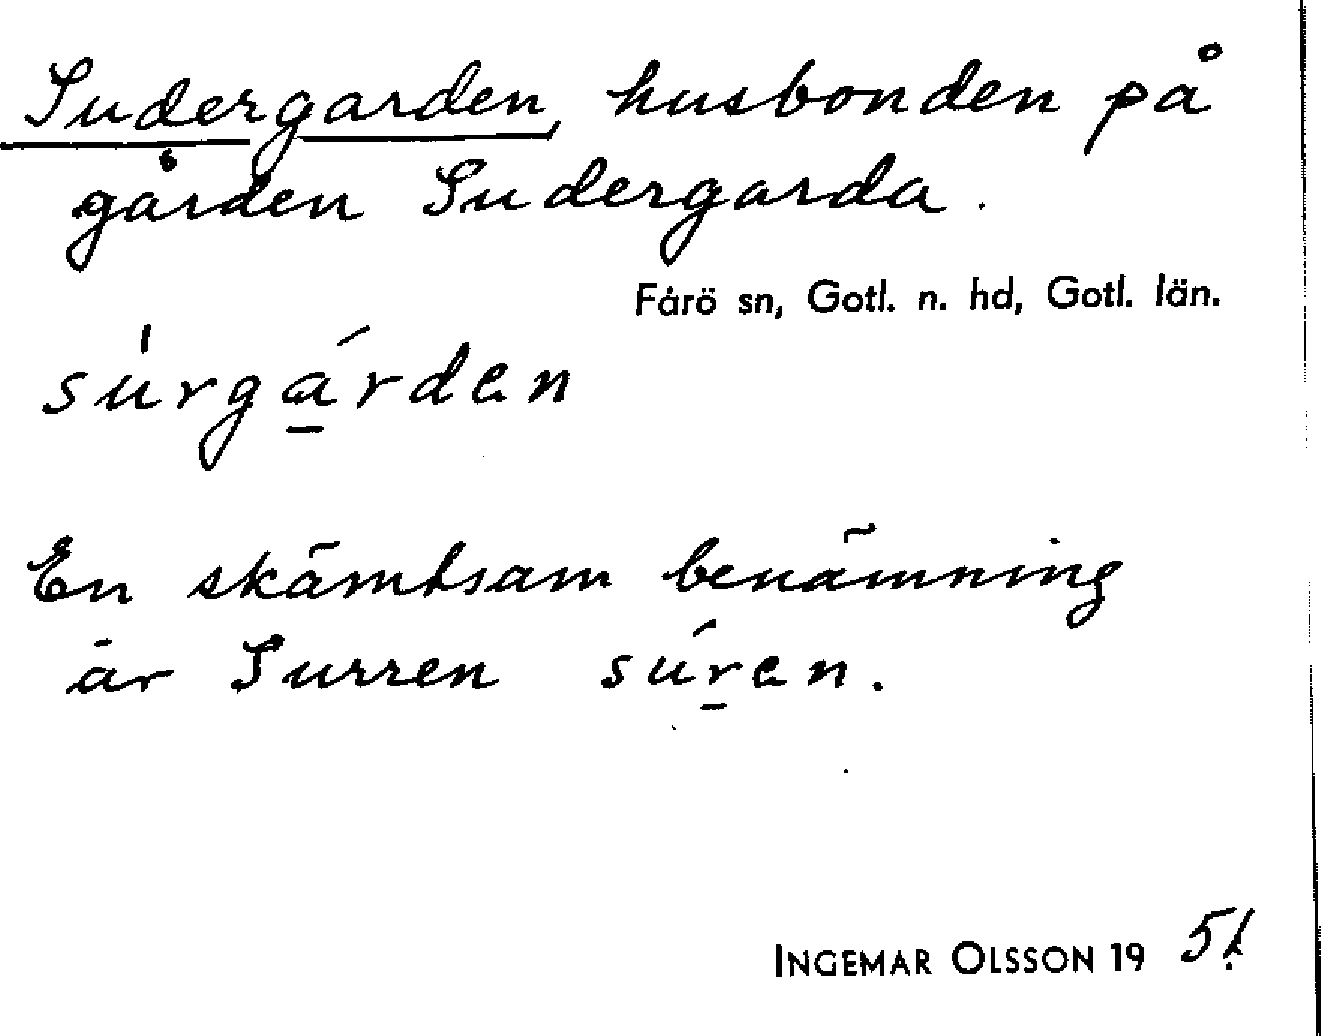 Sudergarden, husbonden på
gården Sudergarda.
Fårö sn, Gotl. n. hd, Gotl. län.
su̍rgá̲rdən
En skämtsam benämning
är Surren súr̲ən.
INGEMAR OLSSON 19 51.